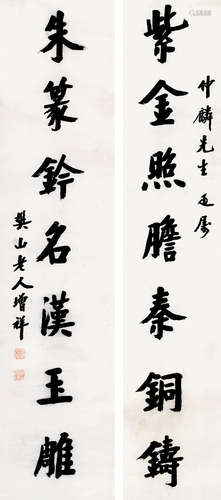 仲麟先生正属
紫金照膽秦銅鑄
朱篆鈐名漢玉雕
樊山老人增祥